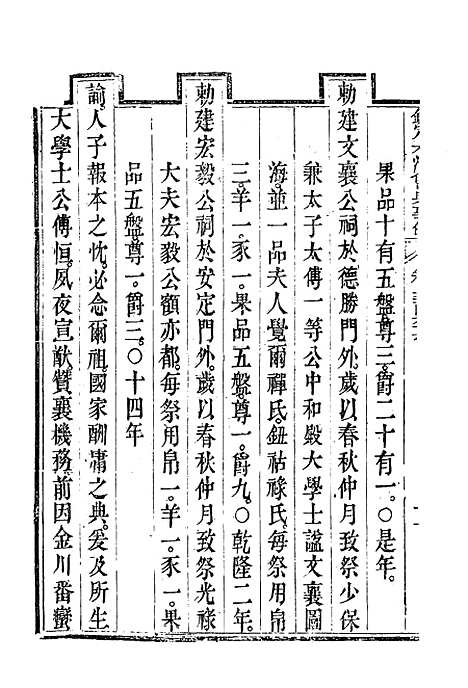 果品十有五盤尊三爵二十有一。○是年。
勅建文襄公祠於德勝門外歲以春秋仲月致祭少保
兼太子太傅一等公中和殿大學士諡文襄圖
海並一品夫人覺爾禪氏鈕祜祿氏每祭用帛
三。羊一。豕一。果品五盤尊一。爵九。○乾隆二年。
勅建宏毅公祠於安定門外歲以春秋仲月致祭光祿
大夫宏毅公額亦都。每祭用帛一。羊一。豕一。果
品五盤尊一。爵三。○十四年
諭。人子報本之忱。必念爾祖。國家酬庸之典。爰及所生
大學士公傅恒。夙夜宣猷。贊襄機務。前因金川番蠻